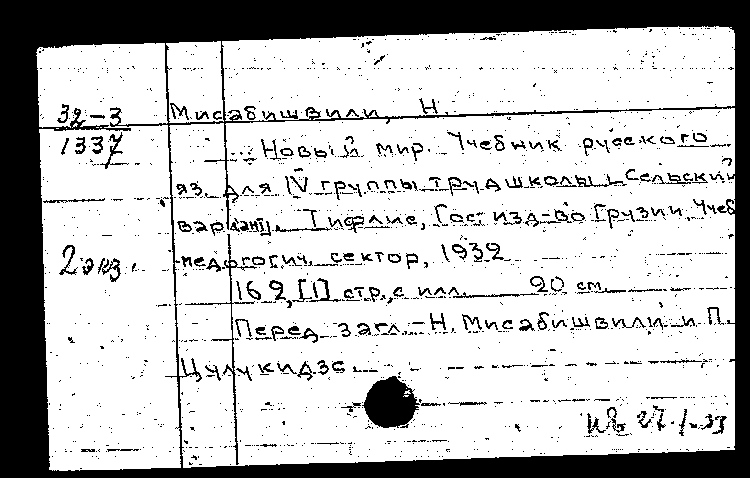 32-3 Мисабишвили, Н.
1337 Новый мир. Учебник русского
яз. для IV группы трудшколы [Сельский
вариант]. Тифлис, Гос. изд-во Грузии, Учеб
2 экз. педогогич. сектор, 1932
162, [1] стр., с илл. 20 см.
Перед загл.-Н. Мисабишвили и П.
Цулукидзе.
27.I.33